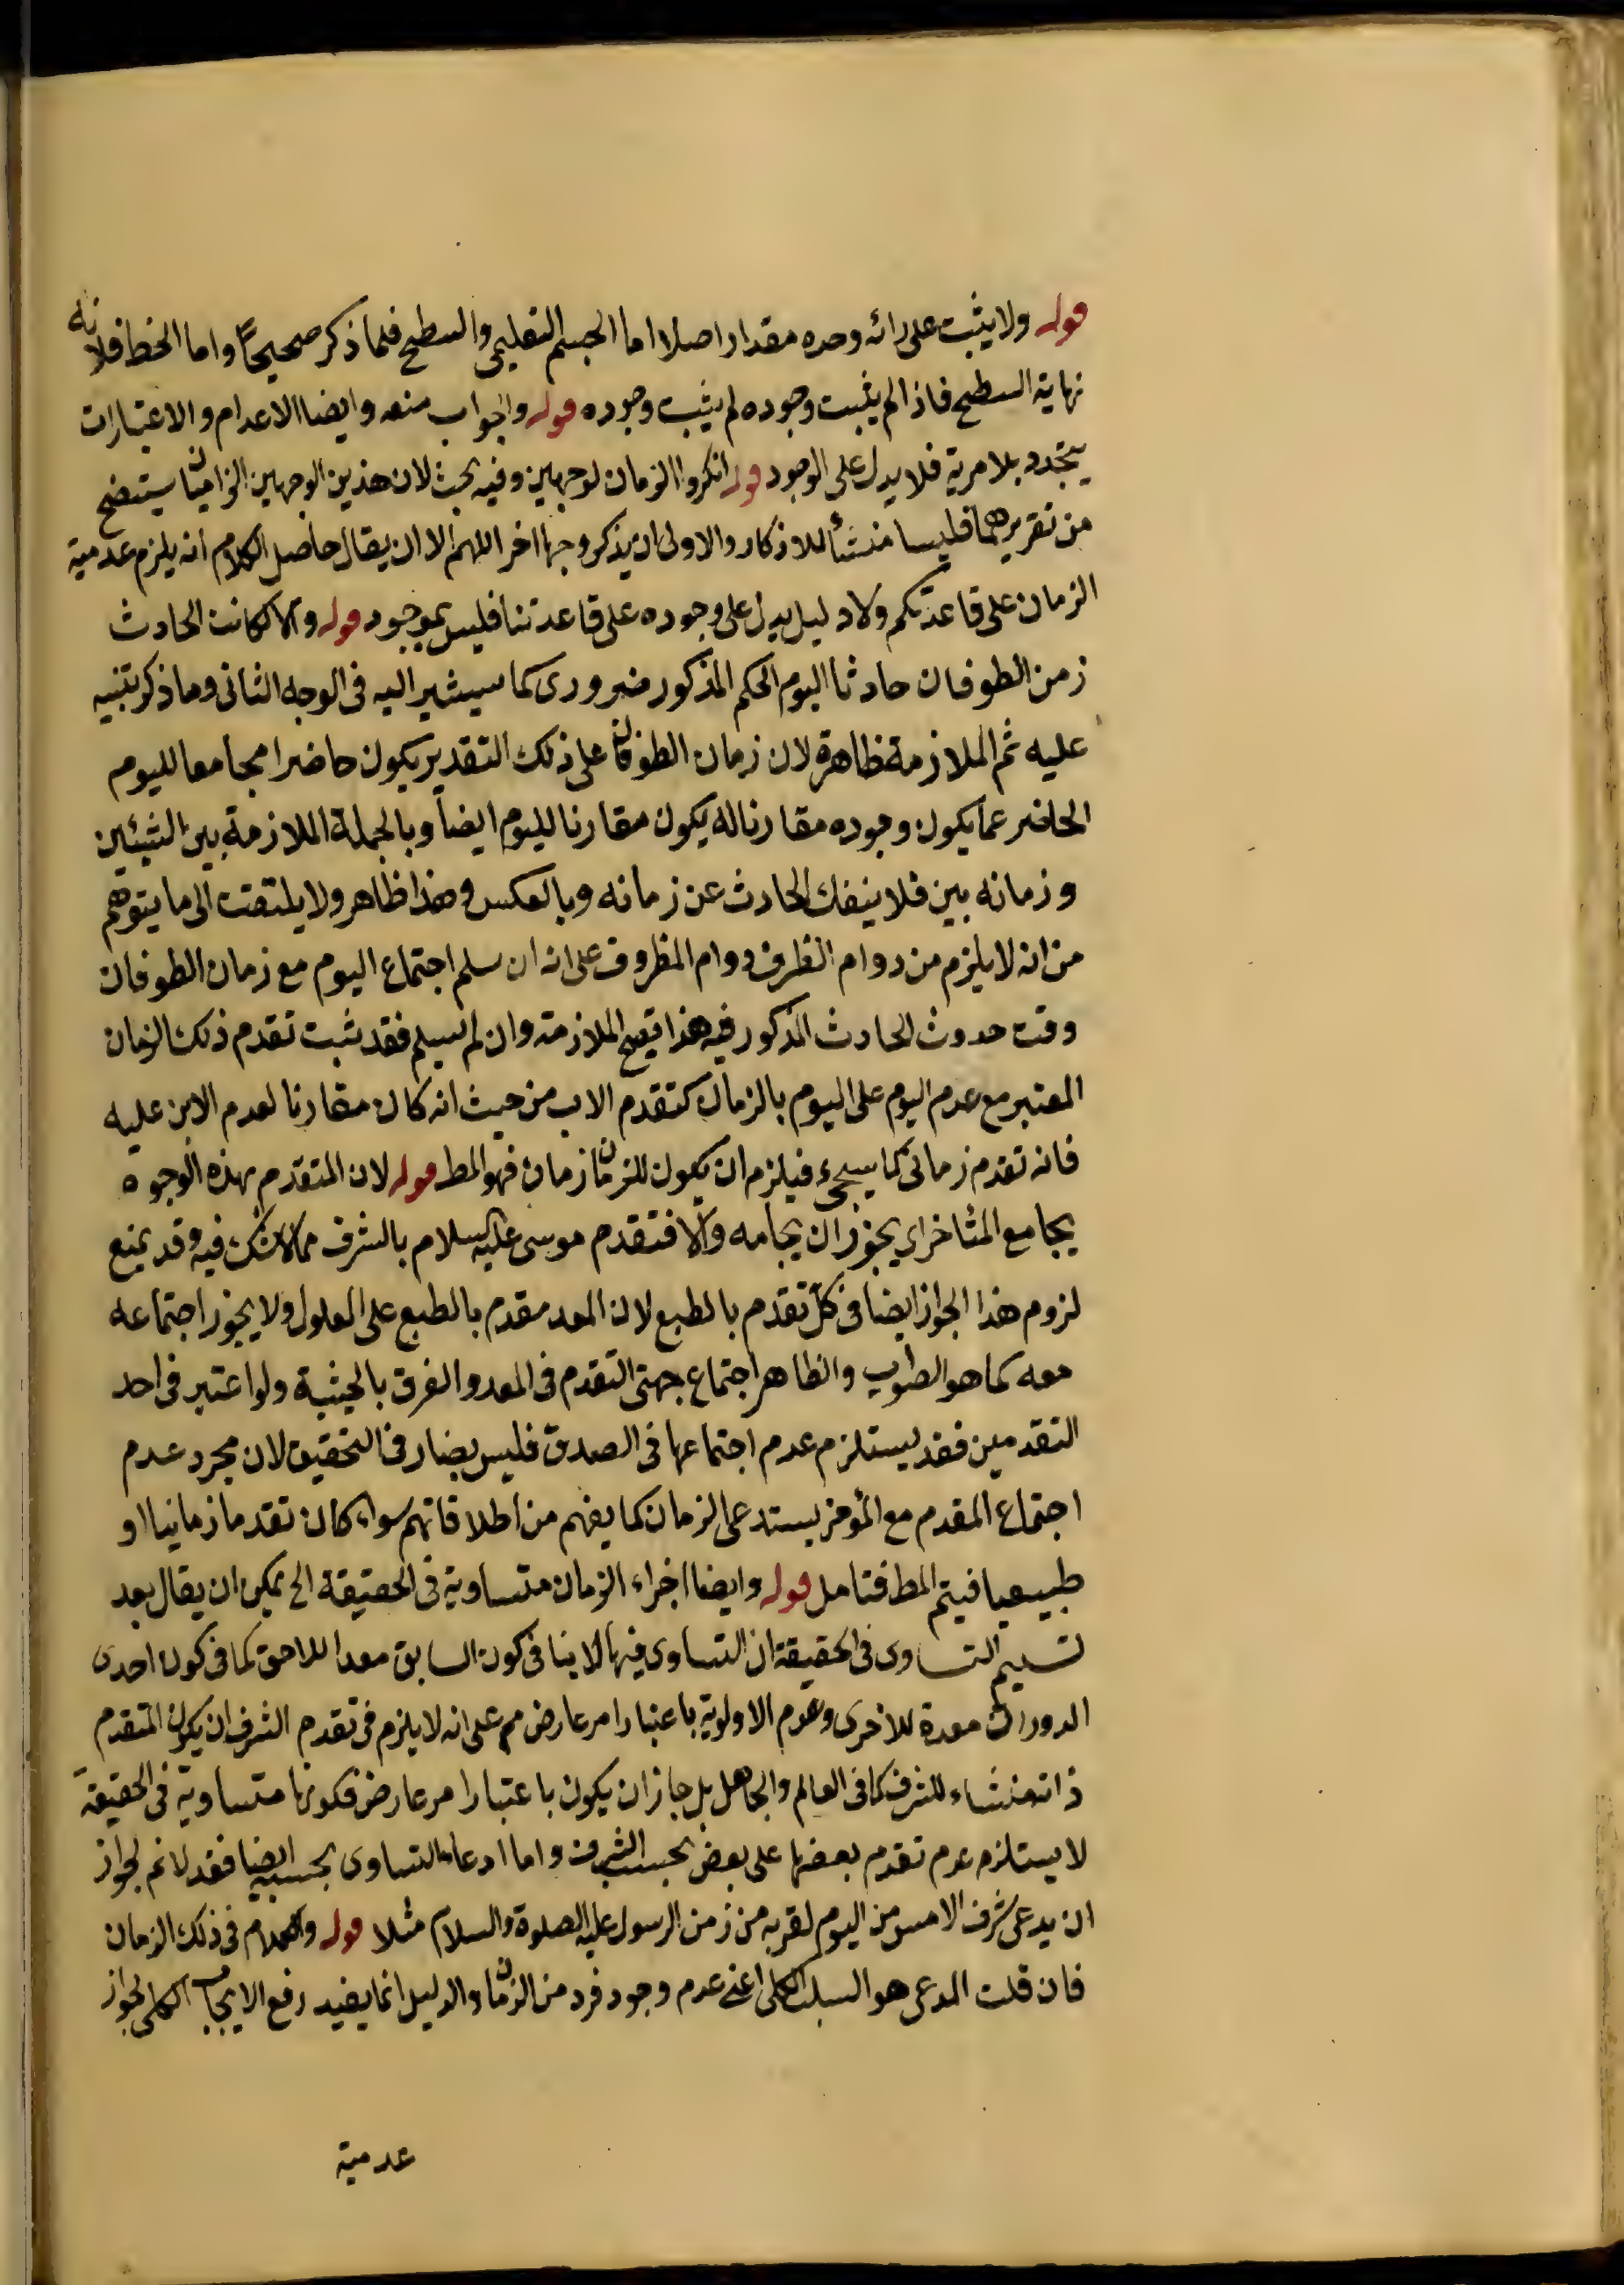 قوله ولا يثبت على رائه وحده مقدار اصلا اما الجسم التعليمى والسطح فلما ذكر صحيحاً واما الخط فلانه
نهاية السطح فاذا لم يثبت وجوده لم يثبت وجوده قوله والجواب منعه وايضا الاعدام والاعتبارات
يتجدد بلا مرية فلا يدل على الوجود قوله انكروا الزمان لوجهين وفيه بحث لان هذين الوجهين الزاميان سيتضح
من تقريرهما فليسا منشأ للانكار والاولى ان يذكر وجها اخر اللهم الا ان يقال حاصل الكلام انه يلزم عدمية
الزمان على قاعدتكم ولا دليل يدل على وجوده على قاعدتنا فليس بموجود قوله والا لكانت الحادث
زمن الطوفان حادثا اليوم الحكم المذكور ضرورى كما سيشير اليه فى الوجه الثانى وما ذكر تنبيه
عليه ثم الملازمة ظاهرة لان زمان الطوفان على ذلك التقدير يكون حاضرا مجامعا لليوم
الحاضر عما يكون وجوده مقارنا له يكون مقارنا لليوم ايضاً وبالجملة الملازمة بين الشيئين
وزمانه بين فلا ينفك الحادث عن زمانه وبالعكس وهذا ظاهر ولا يلتفت الى ما يتوهم
من انه لا يلزم من دوام الظرف دوام المظروف على انه ان سلم اجتماع اليوم مع زمان الطوفان
وقت حدوث الحادث المذكور فيه هذا يتضح الملازمة وان لم يسلم فقد ثبت تقدم ذلك الزمان
المعتبر مع عدم اليوم على اليوم بالزمان كتقدم الاب من حيث انه كان مقارنا لعدم الابن عليه
فانه تقدم زمانى كما سيجىء فيلزم ان يكون للزمان زمان فهو المط قوله لان المتقدم بهذه الوجوه
يجامع المتأخر اى يجوز ان يجامه والا فتقدم موسى عليه السلام بالشرف مما لا شك فيه وقد يمنع
لزوم هذا الجواز ايضا فى كل تقدم بالطبع لان المعد مقدم بالطبع على المعلول ولا يجوز اجتماعه
معه كما هو الصواب والظاهر اجتماع جهتى التقدم فى المعد والفرق بالحيثية ولو اعتبر فى احد
التقدمين فقد يستلزم عدم اجتماعها فى الصدق فليس بضار فى التحقيق لان مجرد عدم
اجتماع المقدم مع المؤخر يستدعى الزمان كما يفهم من اطلاقاتهم سواء كان تقدما زمانيا او
طبيعيا فيتم المط فتامل قوله وايضا اجزاء الزمان متساوية فى الحقيقة الخ يمكن ان يقال بعد
تسليم التساوى فى الحقيقة ان التساوى فيها لا ينافى كون السابق معدا للاحق كما فى كون احدى
الدورات معدة للاخرى وعدم الاولوية باعتبار امر عارض مم على انه لا يلزم فى تقدم الشرف ان يكون المتقدم
ذاته منشاء للشرف كما فى العالم والجاهل بل جاز ان يكون باعتبار امر عارض فكونها متساوية فى الحقيقة
لا يستلزم عدم تقدم بعضها على بعض بحسب الشرف واما ادعاء التساوى بحسبه ايضا فقد لا نم لجواز
ان يدعى شرف الامس من اليوم لقربه من زمن الرسول عليه الصلوة والسلام مثلا قوله والكلام فى ذلك الزمان
فان قلت المدعى هو السلب الكلى اعنى عدم وجود فرد من الزمان والدليل انما يفيد رفع الايجاب الكلى لجواز
عدمية